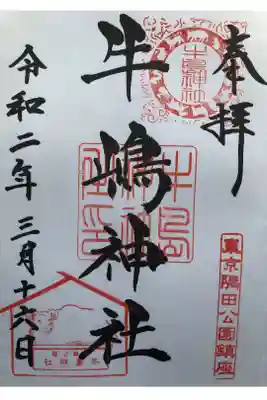 奉拝
牛嶋神社
令和二年三月十六日
牛嶋神社
東京隅田公園鎮座